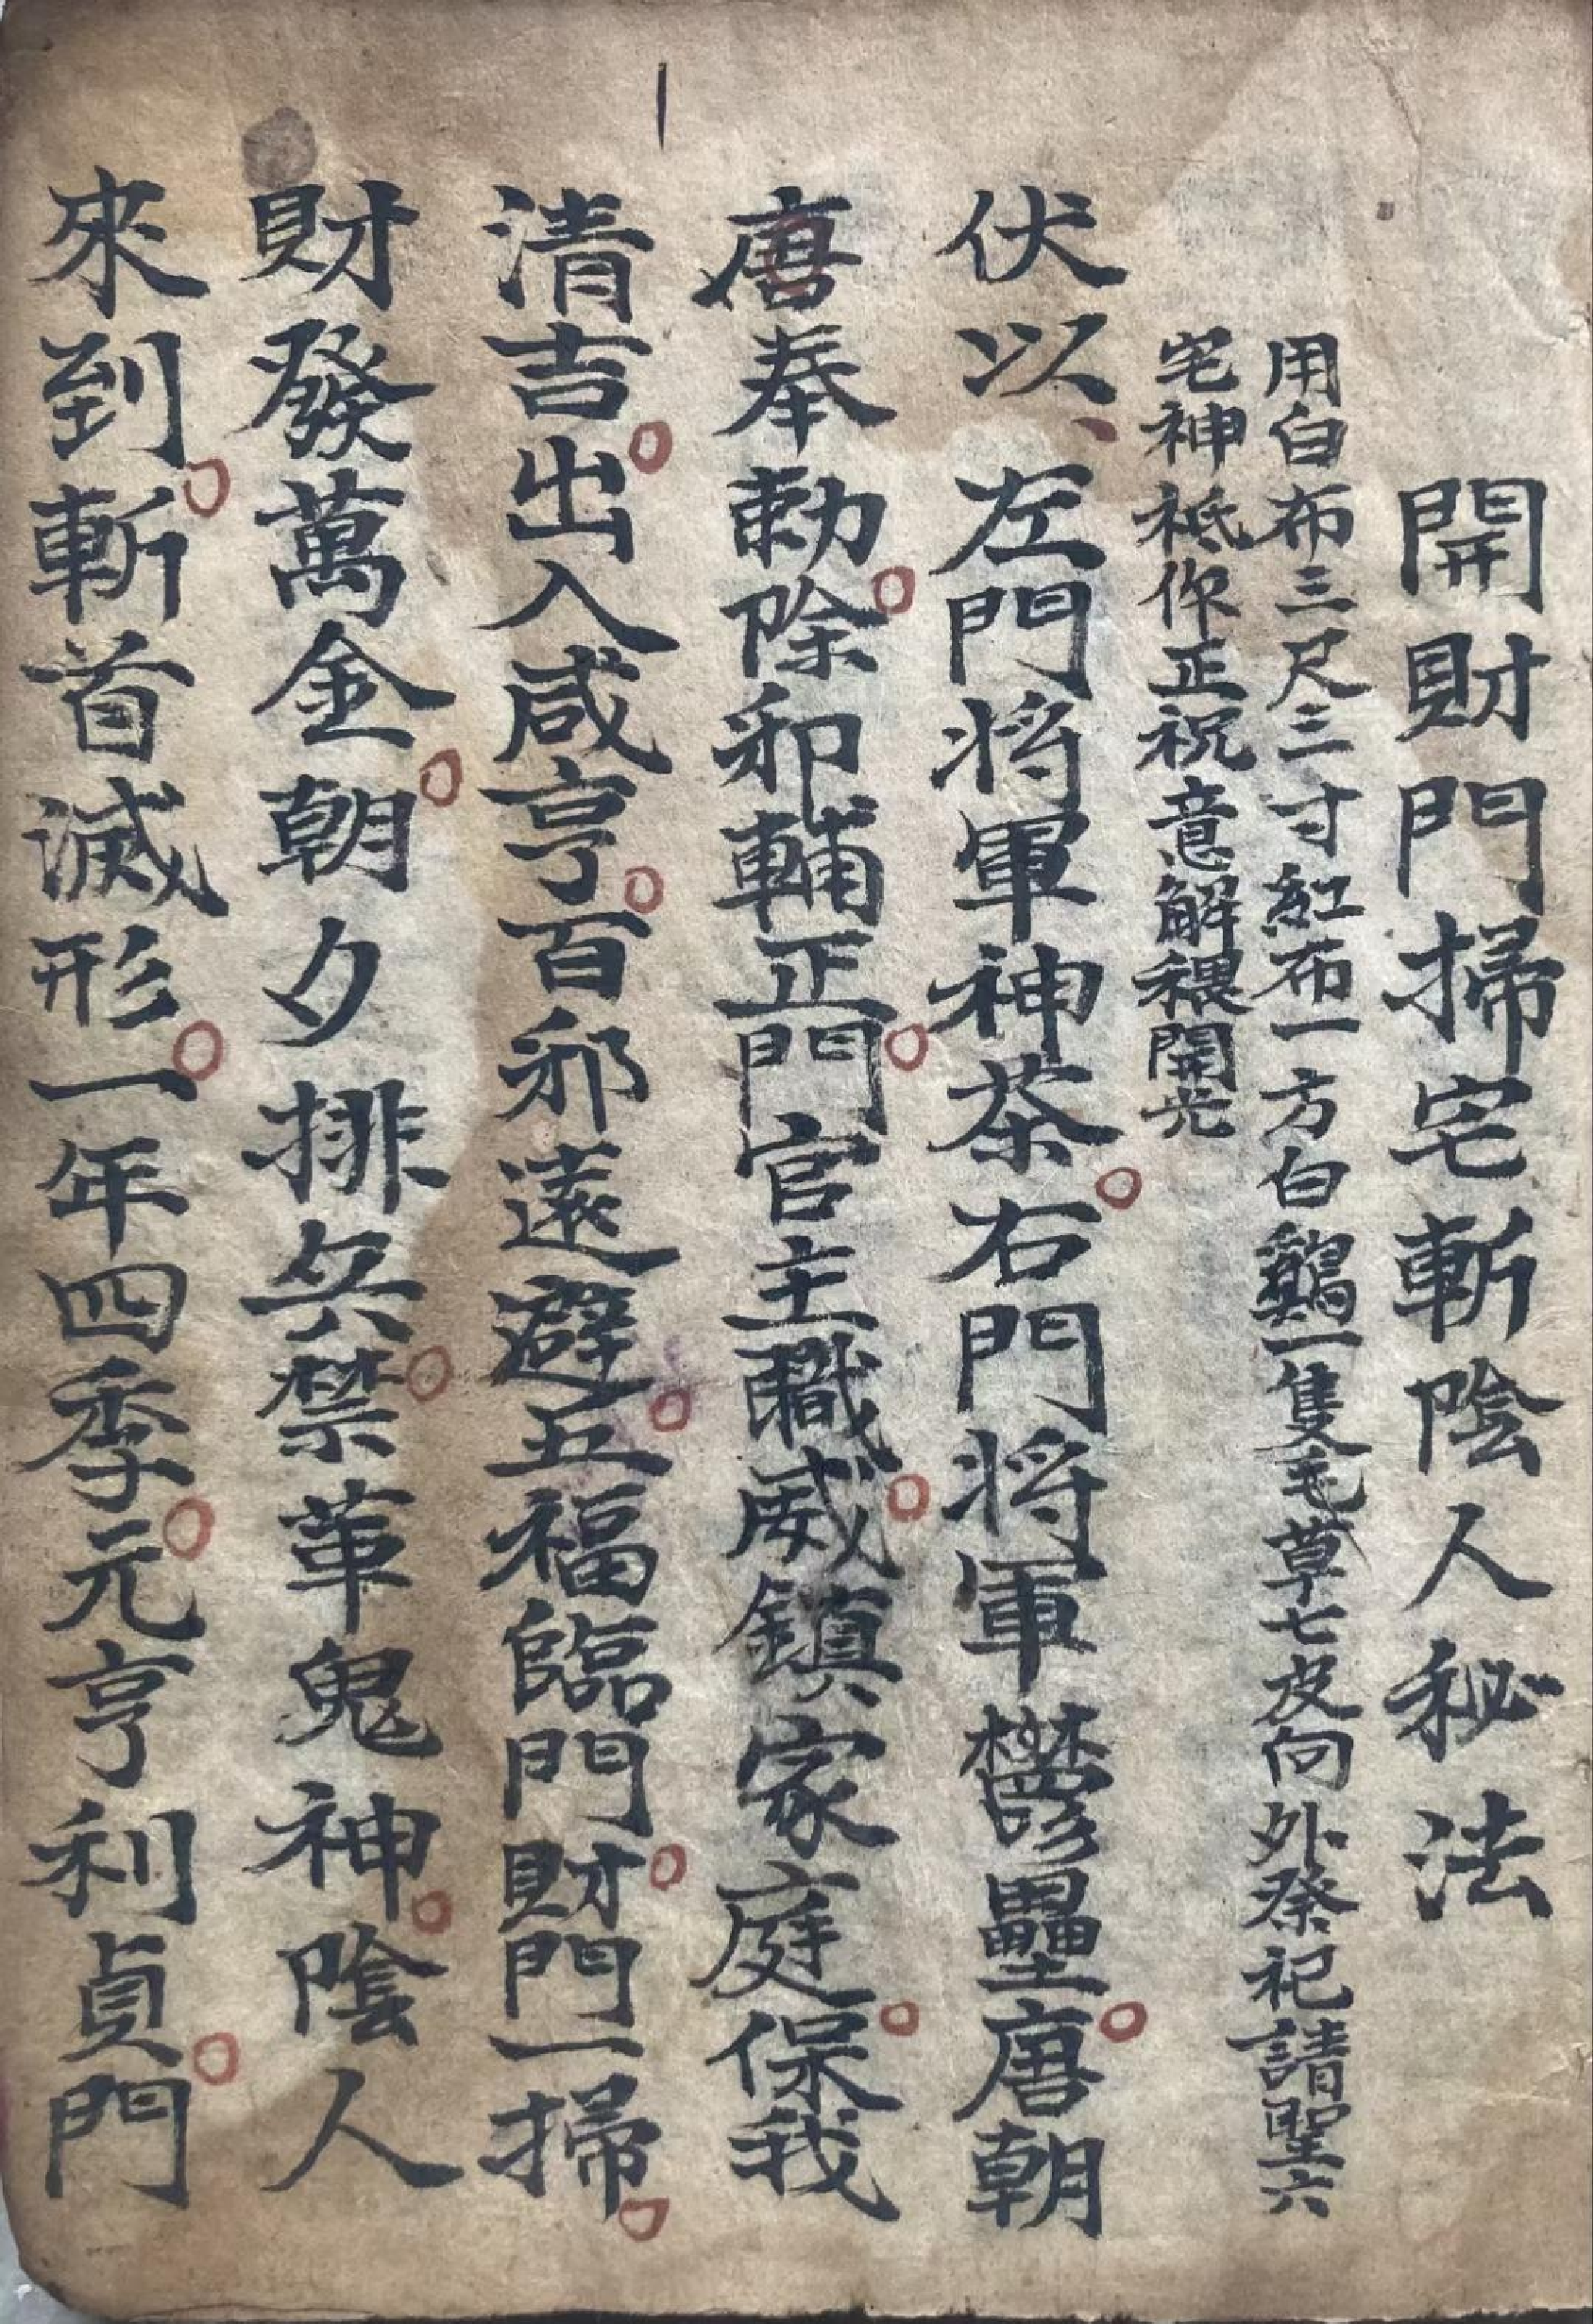 開財門掃宅斬陰人秘法
用白布三尺三寸紅布一方白鷄一隻毛草七皮向外祭祀請聖六
宅神祇作正祝意解穢開光
伏以、左門将軍神茶。右門将軍鬱壘。唐朝
唐奉勅。除邪輔正。門官主職。威鎮家庭。保我
清吉。出入咸亨。百邪遠避。五福臨門。財門一掃。
財發萬金。朝夕排兵。禁革鬼神。陰人
來到。斬首滅形。一年四季。元亨利貞。門